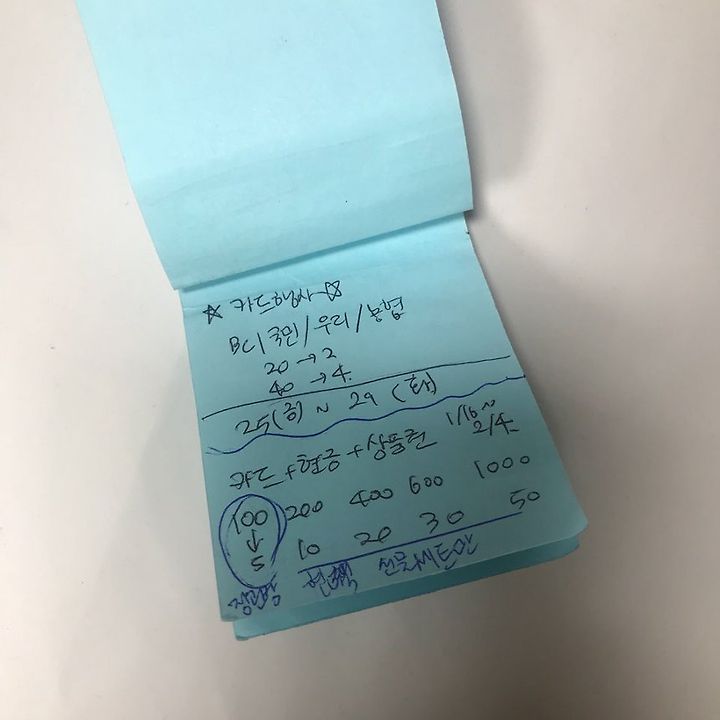 ☆ 카드행사 ☆
BC/국민/우리/농협
20 → 2
40 → 4
25(금) ~ 29 (화)
카드+현금+상품권 1/16~ 2/4
100 200 400 600 1000
↓
5 10 20 30 50
전액 선물세트만